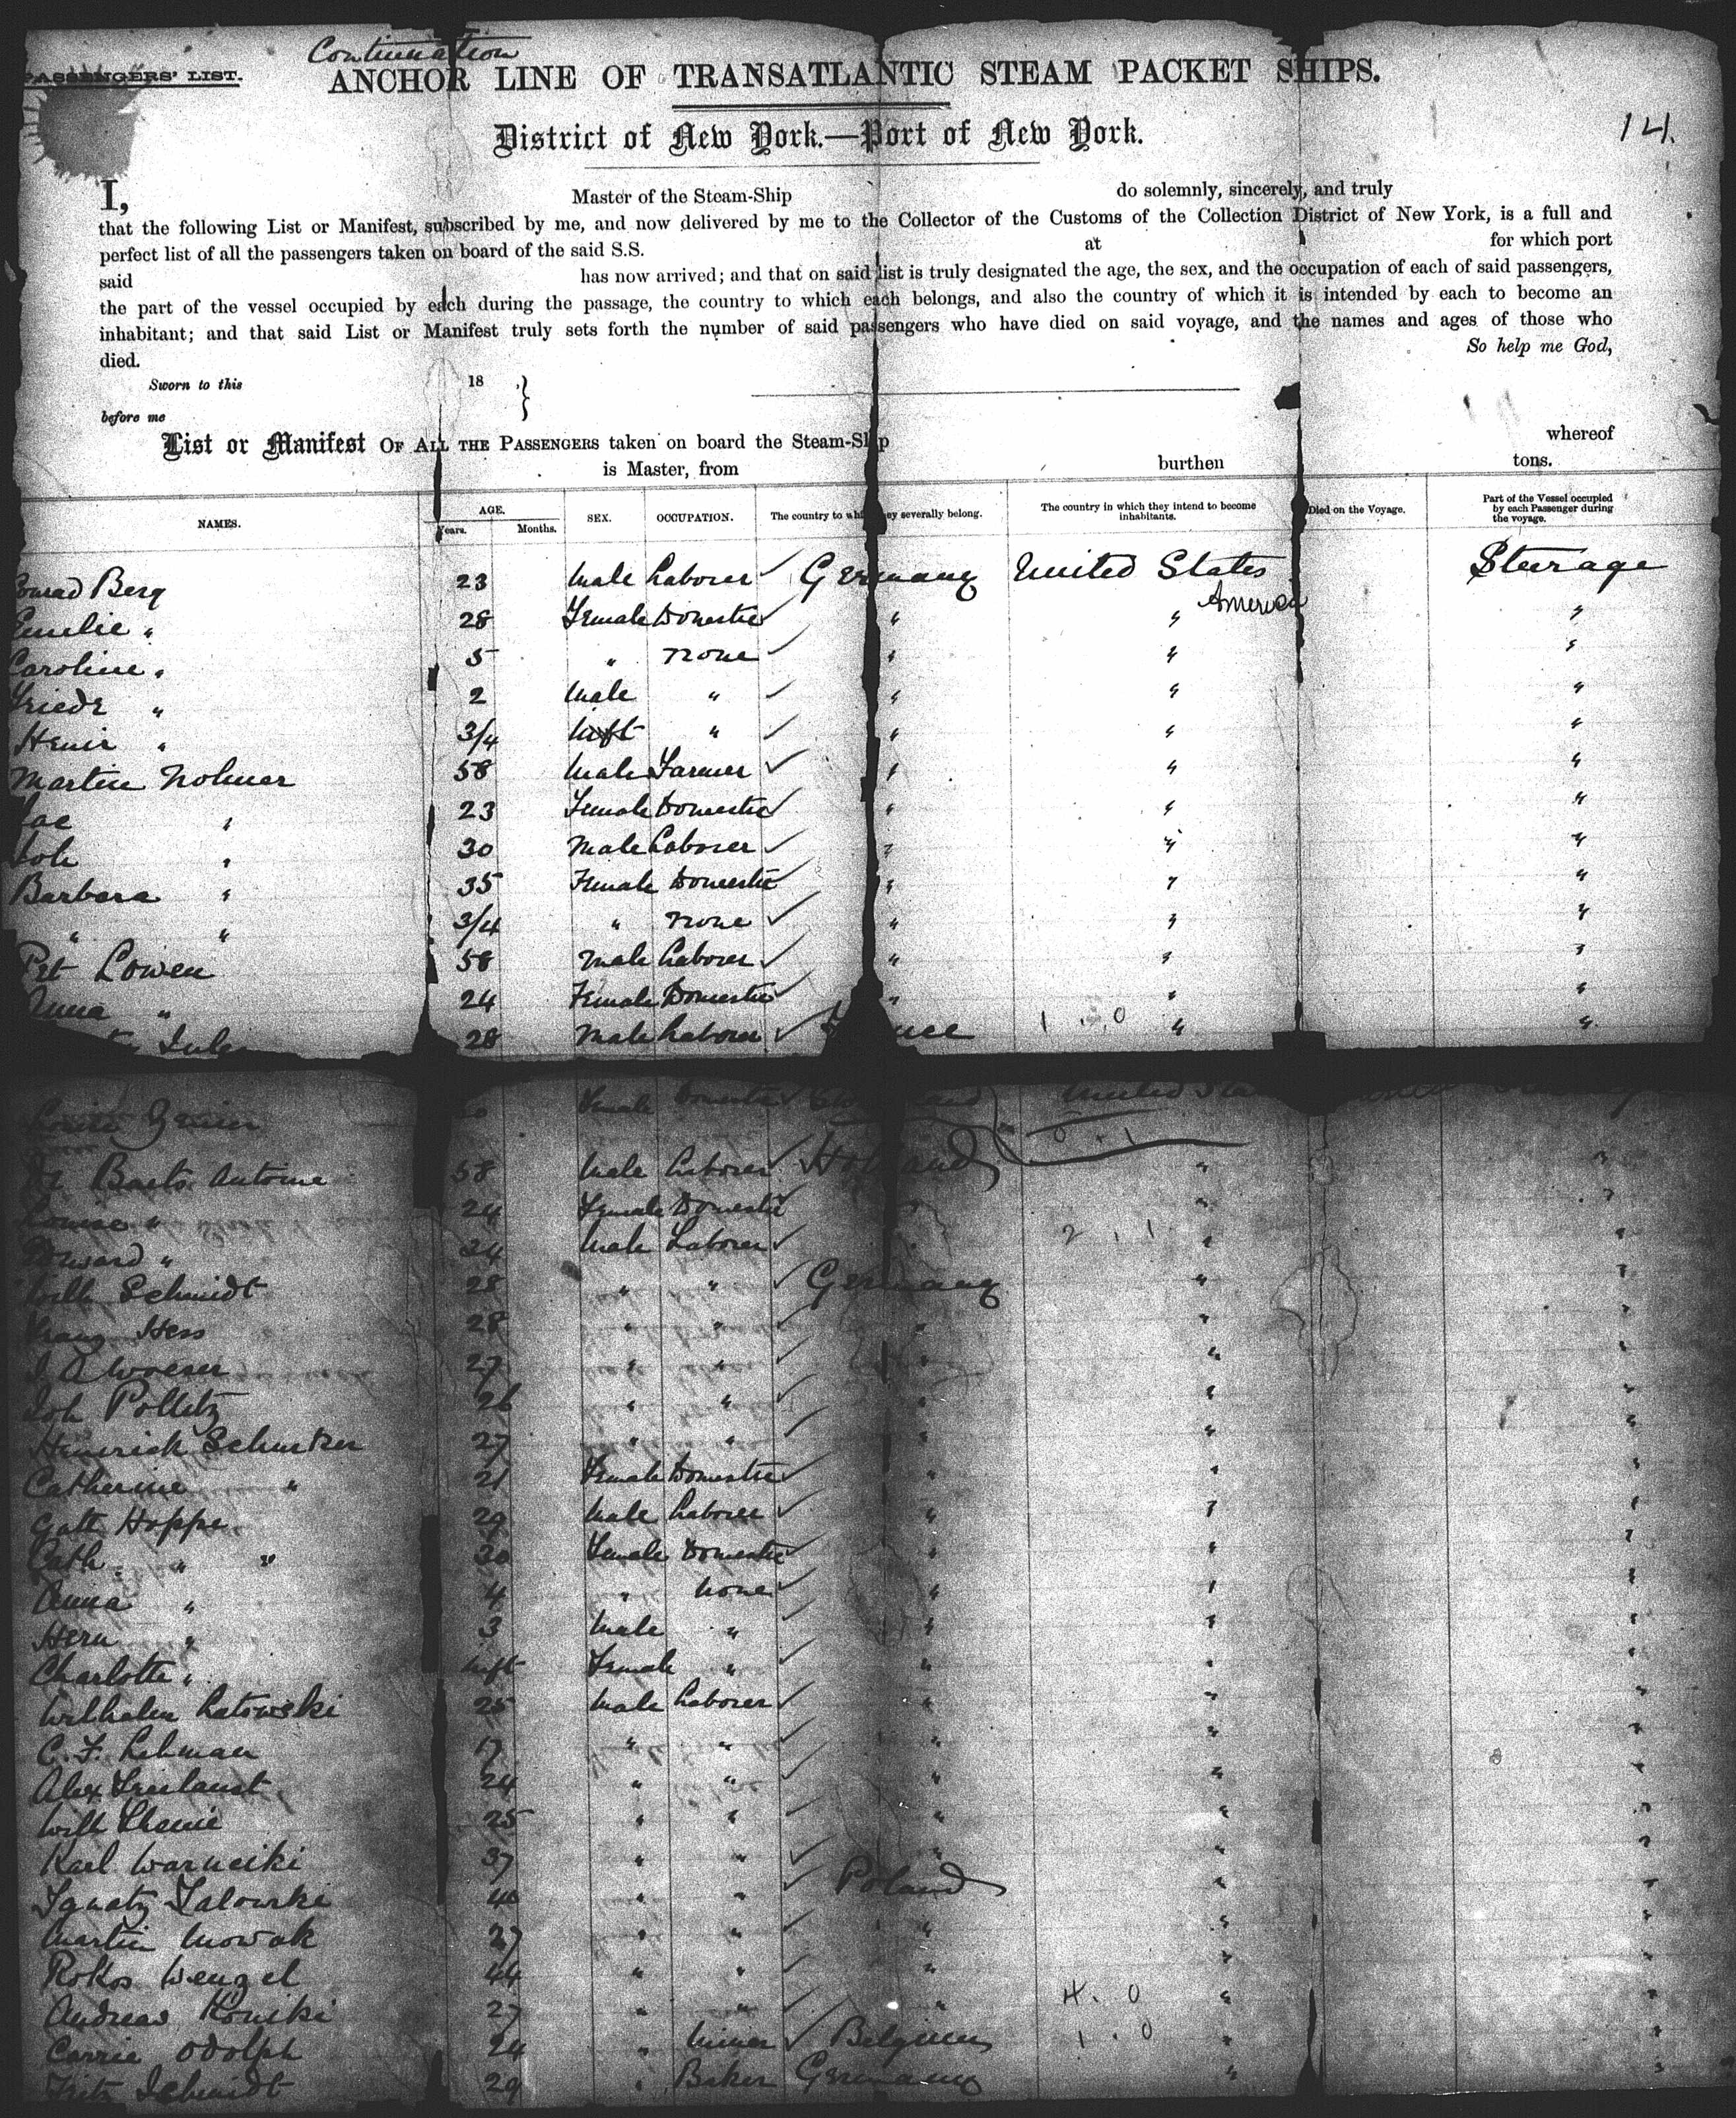 Continuation
PASSENGERS' LIST.
ANCHOR LINE OF TRANSATLANTIC STEAM PACKET SHIPS.
District of New York.—Port of New York.
14.
I, Master of the Steam-Ship do solemnly, sincerely, and truly
that the following List or Manifest, subscribed by me, and now delivered by me to the Collector of the Customs of the Collection District of New York, is a full and
perfect list of all the passengers taken on board of the said S.S. at for which port
said has now arrived; and that on said list is truly designated the age, the sex, and the occupation of each of said passengers,
the part of the vessel occupied by each during the passage, the country to which each belongs, and also the country of which it is intended by each to become an
inhabitant; and that said List or Manifest truly sets forth the number of said passengers who have died on said voyage, and the names and ages of those who
died. So help me God,
Sworn to this 18
before me
List or Manifest OF ALL THE PASSENGERS taken on board the Steam-Ship whereof
is Master, from burthen tons.
NAMES. AGE. Years. Months. SEX. OCCUPATION. The country to which they severally belong. The country in which they intend to become inhabitants. Died on the Voyage. Part of the Vessel occupied by each Passenger during the voyage.
Conrad Berg 23 Male Laborer Germany United States America Steerage
Emilie " 28 Female Domestic " " "
Caroline " 5 " None " " "
Friedr " 2 Male " " " "
Henir " 3/4 Inft " " " "
Martin Nolmer 58 Male Farmer " " "
" 23 Female Domestic " " "
Joh " 30 Male Laborer " " "
Barbara " 35 Female Domestic " " "
" " 3/4 " None " " "
Pet Lowen 58 Male Laborer " " "
Anna " 24 Female Domestic " " "
28 Male Laborer " "
Louise Female Domestic United
Baets Antoine 58 Male Laborer Holland " "
Louise " 24 Female Domestic " " "
Edward " 24 Male Laborer " 2 . 1 " "
Wilh Schmidt 28 " " Germany " "
Franz Hess 28 " " " " "
27 " " " " "
Joh Polletz 26 " " " " "
Heinrich Schurker 27 " " " " "
Catherine " 21 Female Domestic " " "
Gott Hoppe 29 Male Laborer " " "
Cath " " 30 Female Domestic " " "
Anna " 4 " None " " "
Herm " 3 Male " " " "
Charlotte " Inft Female " " " "
Wilhelm Latowski 25 Male Laborer " " "
C. F. Lehman 17 " " " " "
Alex 24 " " " " "
Wilh 25 " " " " "
Karl Warneiki 37 " " " " "
Ignatz Zalowski 40 " " Poland " "
Martin Nowak 27 " " " " "
Rokos Wenzel 44 " " " " "
Andreas Koniki 27 " " " 4 . 0 " "
Carrie Odolph 24 " Miner Belgium 1 . 0 " "
Fritz Schmidt 29 " Baker Germany " "